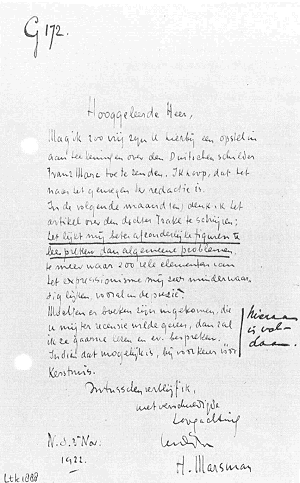 G 172.
Hooggeleerde Heer,
Mag ik zoo vrij zijn U hierbij een opstel in
aanteekeningen over den Duitschen schilder
Franz Marc toe te zenden. Ik hoop, dat het
naar het genoegen der redactie is.
In de volgende maand(en) denk ik het
artikel over den dichter Trakl te schrijven.
Het lijkt mij beter afzonderlijke figuren te
bespreken dan algemeene problemen,
te meer waar zoo vele elementen van
het expressionisme mij zeer minderwaar-
dig lijken, vooral in de poëzie.
Mochten er boeken zijn ingekomen, die
U mij ter recensie wilde geven, dan zal
ik ze gaarne lezen en ev. bespreken.
Indien dat mogelijk is, bij voorkeur vóór
Kerstmis.
hieraan
is vol-
daan.
Intusschen verblijf ik,
met verschuldigde
hoogachting
Uw dw.
H. Marsman
N. 3e Nov.
1922.
Ltk 1888